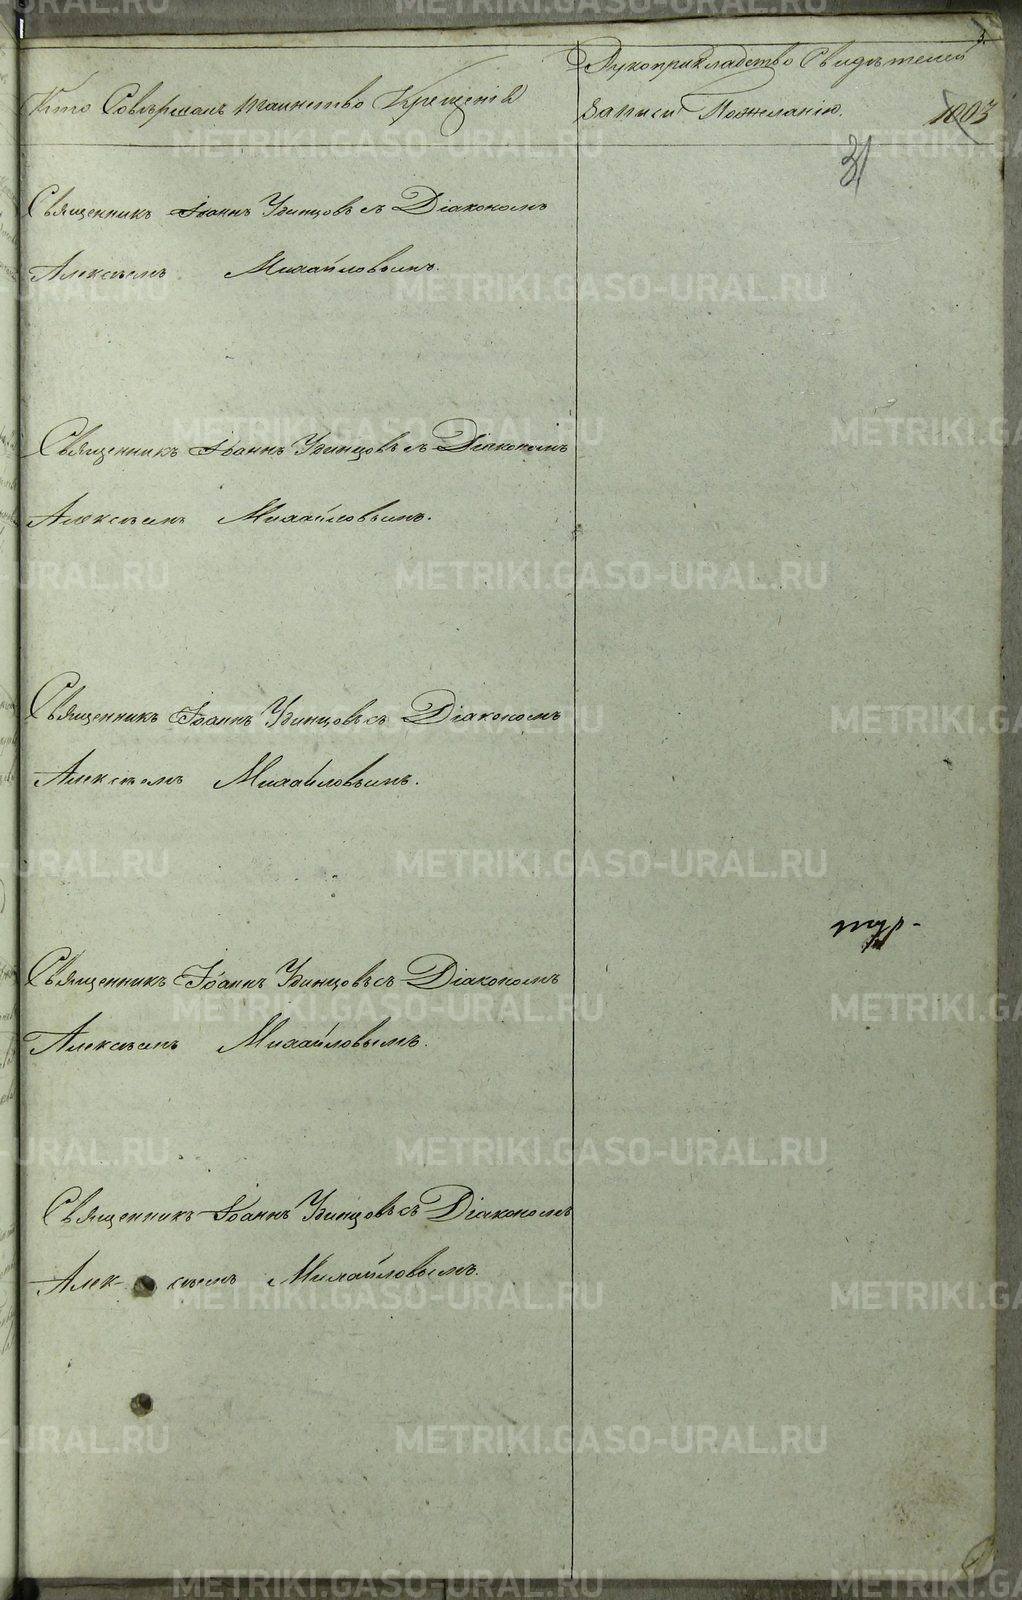 3.
Кто Совѣршалъ таинство Крещенія
Рукоприкладство Свидѣтелей
записи Пожеланію.
1003
31
Священникъ Іоаннъ Удинцовъ съ Діакономъ
Алексѣемъ Михайловымъ.
Священникъ Іоаннъ Удинцовъ съ Діакономъ
Алексѣемъ Михайловымъ.
Священникъ Іоаннъ Удинцовъ съ Діакономъ
Алексѣемъ Михайловымъ.
Священникъ Іоаннъ Удинцовъ съ Діакономъ
Алексѣемъ Михайловымъ.
Священникъ Іоаннъ Удинцовъ съ Діакономъ
Алек- сѣемъ Михайловымъ.
METRIKI.GASO-URAL.RU